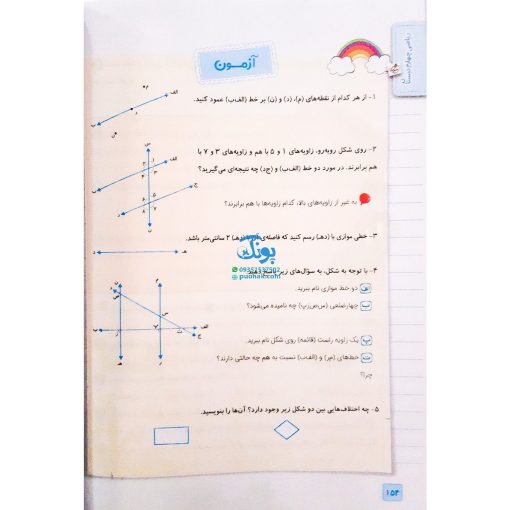 ریاضی چهارم دبستان
آزمـون
۱- از هر کدام از نقطه‌های (م)، (د) و (ن) بر خط (الف‌ب) عمود کنید.
۲- روی شکل روبه‌رو، زاویه‌های ۱ و ۵ با هم و زاویه‌های ۳ و ۷ با
هم برابرند. در مورد دو خط (الف‌ب) و (ج‌د) چه نتیجه‌ای می‌گیرید؟
به غیر از زاویه‌های بالا، کدام زاویه‌ها با هم برابرند؟
۳- خطی موازی با (ده) رسم کنید که فاصله‌ی آن با (ده) ۲ سانتی‌متر باشد.
پونک
09351537502
puonak.com
۴- با توجه به شکل، به سؤال‌های زیر پاسخ دهید.
الف دو خط موازی نام ببرید.
ب چهارضلعی (س‌ص‌ز‌پ) چه نامیده می‌شود؟
پ یک زاویه راست (قائمه) روی شکل نام ببرید.
ت خط‌های (م‌ر) و (الف‌ب) نسبت به هم چه حالتی دارند؟
چرا؟
۵- چه اختلاف‌هایی بین دو شکل زیر وجود دارد؟ آن‌ها را بنویسید.
۱۵۴